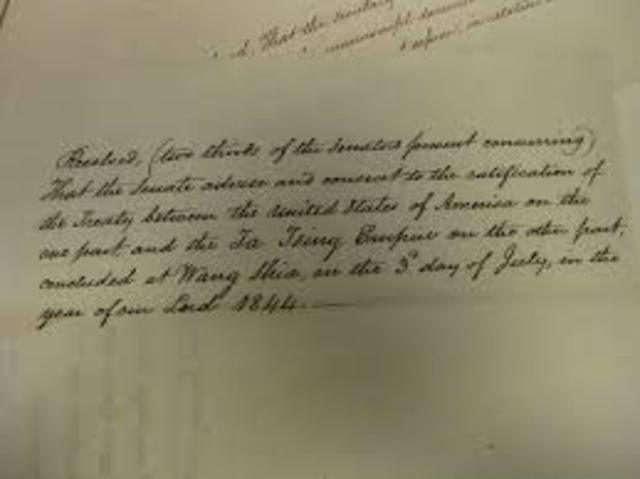 That the
manuscript
Resolved, (two thirds of the Senators present concurring)
That the Senate advise and consent to the ratification of
the Treaty between the United States of America on the
one part and the Ta Tsing Empire on the other part,
concluded at Wang Shia, on the 3d day of July, in the
year of our Lord 1844.